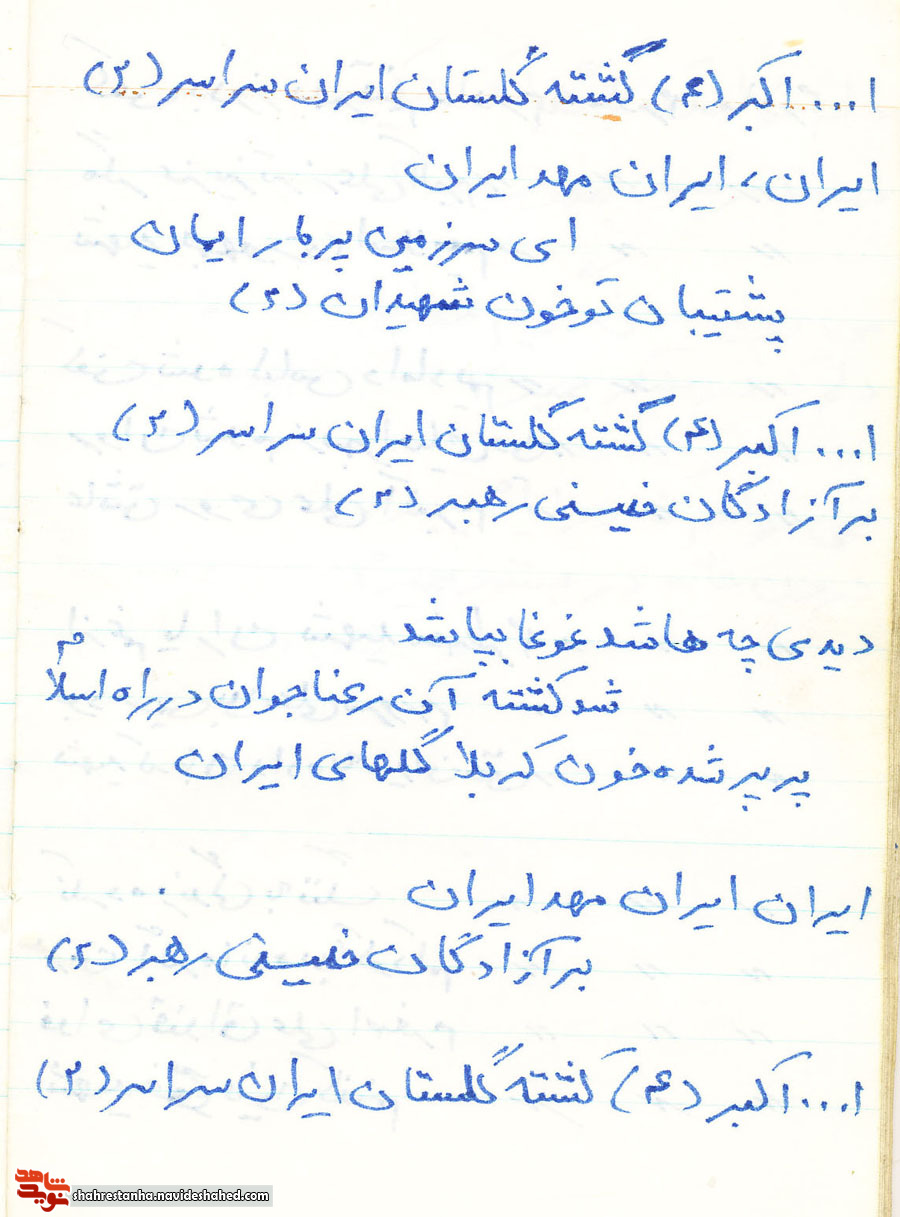 ا... اکبر (۴) گشته گلستان ایران سراسر (۲)
ایران، ایران مهد ایران
ای سرزمین پربار ایمان
پشتیبان تو خون شهیدان (۲)
ا... اکبر (۴) گشته گلستان ایران سراسر (۲)
بر آزادگان خمینی رهبر (۲)
دیدی چه ها شد غوغا بپا شد
شد کشته آن رعنا جوان در راه اسلام
پرپر شده خون کربلا گلهای ایران
ایران ایران مهد ایران
بر آزادگان خمینی رهبر (۲)
ا... اکبر (۴) گشته گلستان ایران سراسر (۲)
شاهد
نوید
shahrestanha.navideshahed.com